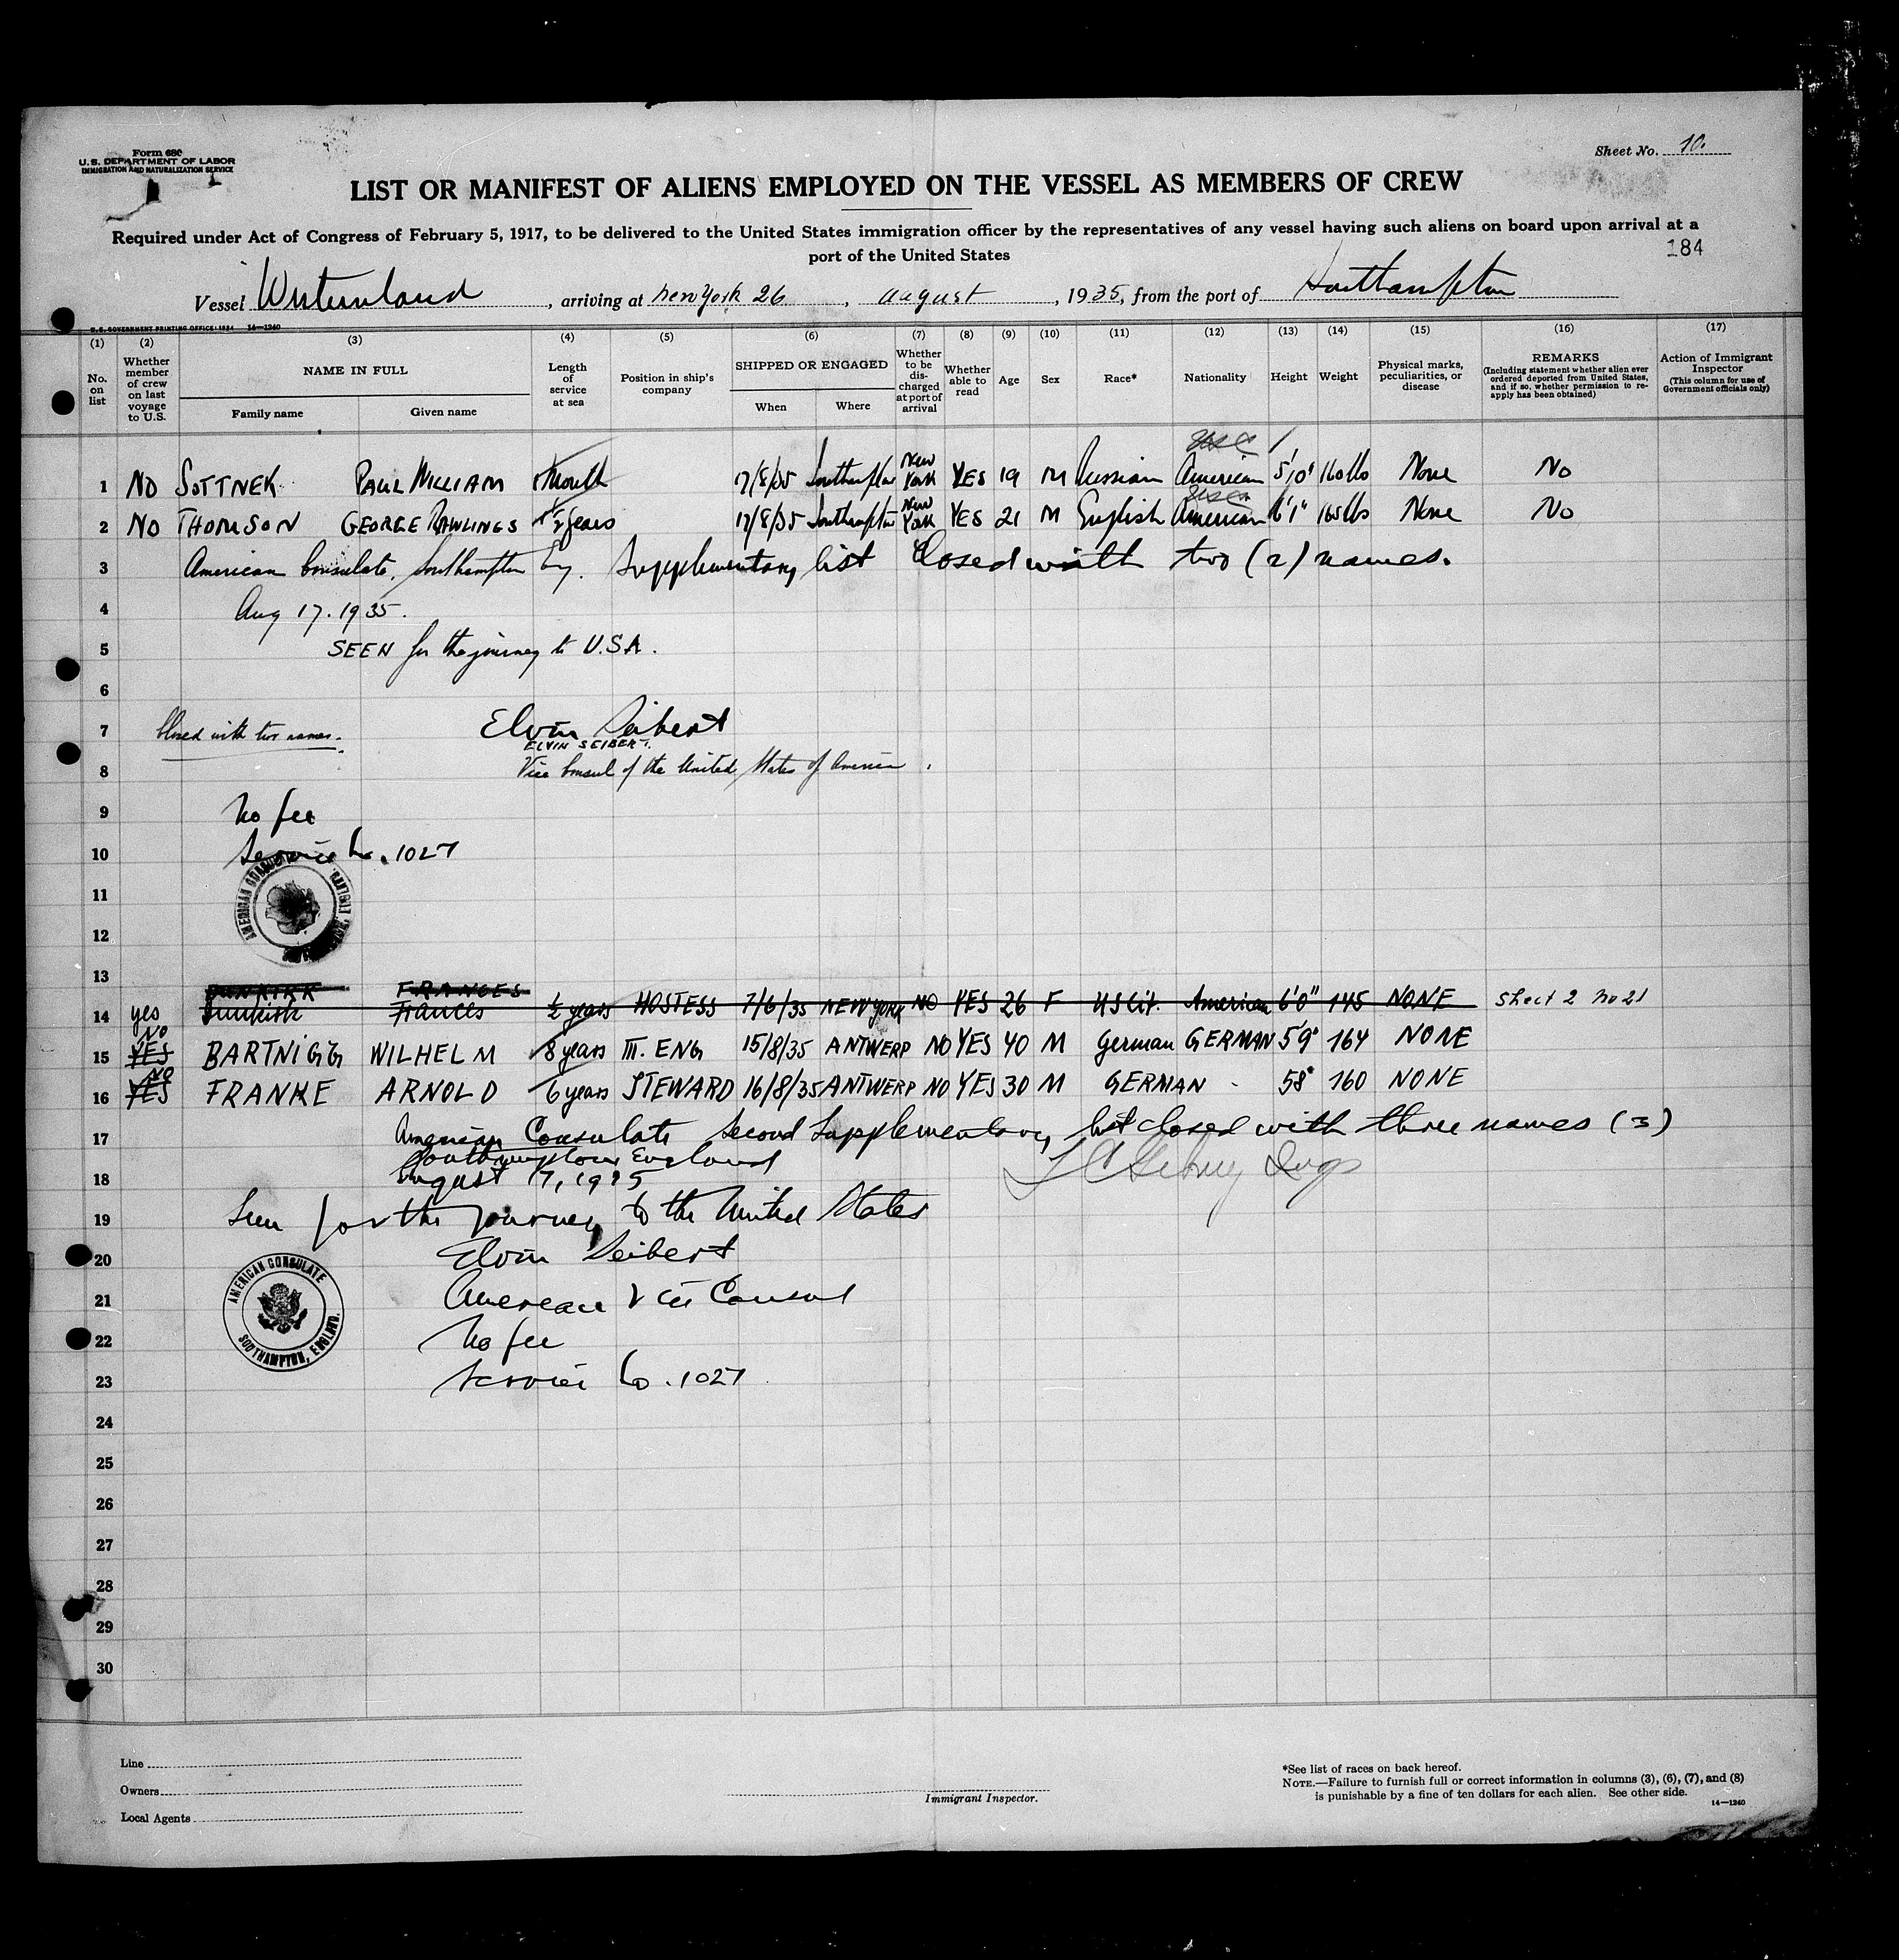 Form 680
U.S. DEPARTMENT OF LABOR
IMMIGRATION AND NATURALIZATION SERVICE
Sheet No. 10.
LIST OR MANIFEST OF ALIENS EMPLOYED ON THE VESSEL AS MEMBERS OF CREW
Required under Act of Congress of February 5, 1917, to be delivered to the United States immigration officer by the representatives of any vessel having such aliens on board upon arrival at a
port of the United States
184
Vessel Westernland, arriving at New York 26, august, 1935, from the port of Southampton
U.S. GOVERNMENT PRINTING OFFICE: 1934 14—1240
(1) (2) (3) (4) (5) (6) (7) (8) (9) (10) (11) (12) (13) (14) (15) (16) (17)
No. on list
Whether member of crew on last voyage to U.S.
NAME IN FULL
Family name Given name
Length of service at sea
Position in ship's company
SHIPPED OR ENGAGED
When Where
Whether to be discharged at port of arrival
Whether able to read
Age
Sex
Race*
Nationality
Height
Weight
Physical marks, peculiarities, or disease
REMARKS
(Including statement whether alien ever ordered deported from United States, and if so, whether permission to reapply has been obtained)
Action of Immigrant Inspector
(This column for use of Government officials only)
1 NO SOTTNEK PAUL WILLIAM 1 Month 17/8/35 Southampton New York YES 19 M Russian American 5'10" 160 lbs None No
2 NO THOMSON GEORGE RAWLINGS 1½ years 17/8/35 Southampton New York YES 21 M English American 6'1" 165 lbs None No
3 American Consulate, Southampton Eng. Supplementary list Closed with two (2) names.
4 Aug 17. 1935.
5 SEEN for the journey to U.S.A.
6
7 Closed with two names. Elvin Seibert
ELVIN SEIBERT.
8 Vice Consul of the United States of America.
9 No fee
10 Service No. 1027
AMERICAN CONSULATE
11
12
13
DUNKIRK FRANCES
14 yes Dunkirk Frances ½ years HOSTESS 7/6/35 NEW YORK NO YES 26 F US Cit. American 6'0" 145 NONE Sheet 2 No 21
NO
15 YES BARTNIGG WILHELM 8 years III. ENG 15/8/35 ANTWERP NO YES 40 M German GERMAN 5'9" 164 NONE
NO
16 YES FRANKE ARNOLD 6 years STEWARD 16/8/35 ANTWERP NO YES 30 M GERMAN - 58" 160 NONE
17 American Consulate Second Supplementary list closed with three names (3)
Southampton England
18 August 17, 1935
19 Seen for the journey to the United States
20 Elvin Seibert
21 American Vice Consul
22 No fee
23 Service No. 1027
AMERICAN CONSULATE
SOUTHAMPTON, ENGLAND.
24
25
26
27
28
29
30
Line
Owners
Local Agents
Immigrant Inspector.
*See list of races on back hereof.
NOTE.—Failure to furnish full or correct information in columns (3), (6), (7), and (8)
is punishable by a fine of ten dollars for each alien. See other side.
14—1240